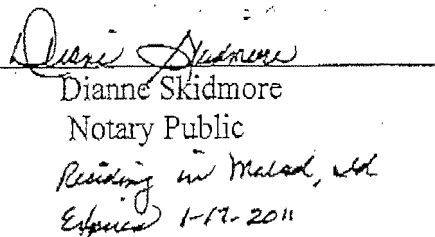 Diane Skidmore
Dianne Skidmore
Notary Public
Residing in Malad, Id
Expires 1-17-2011